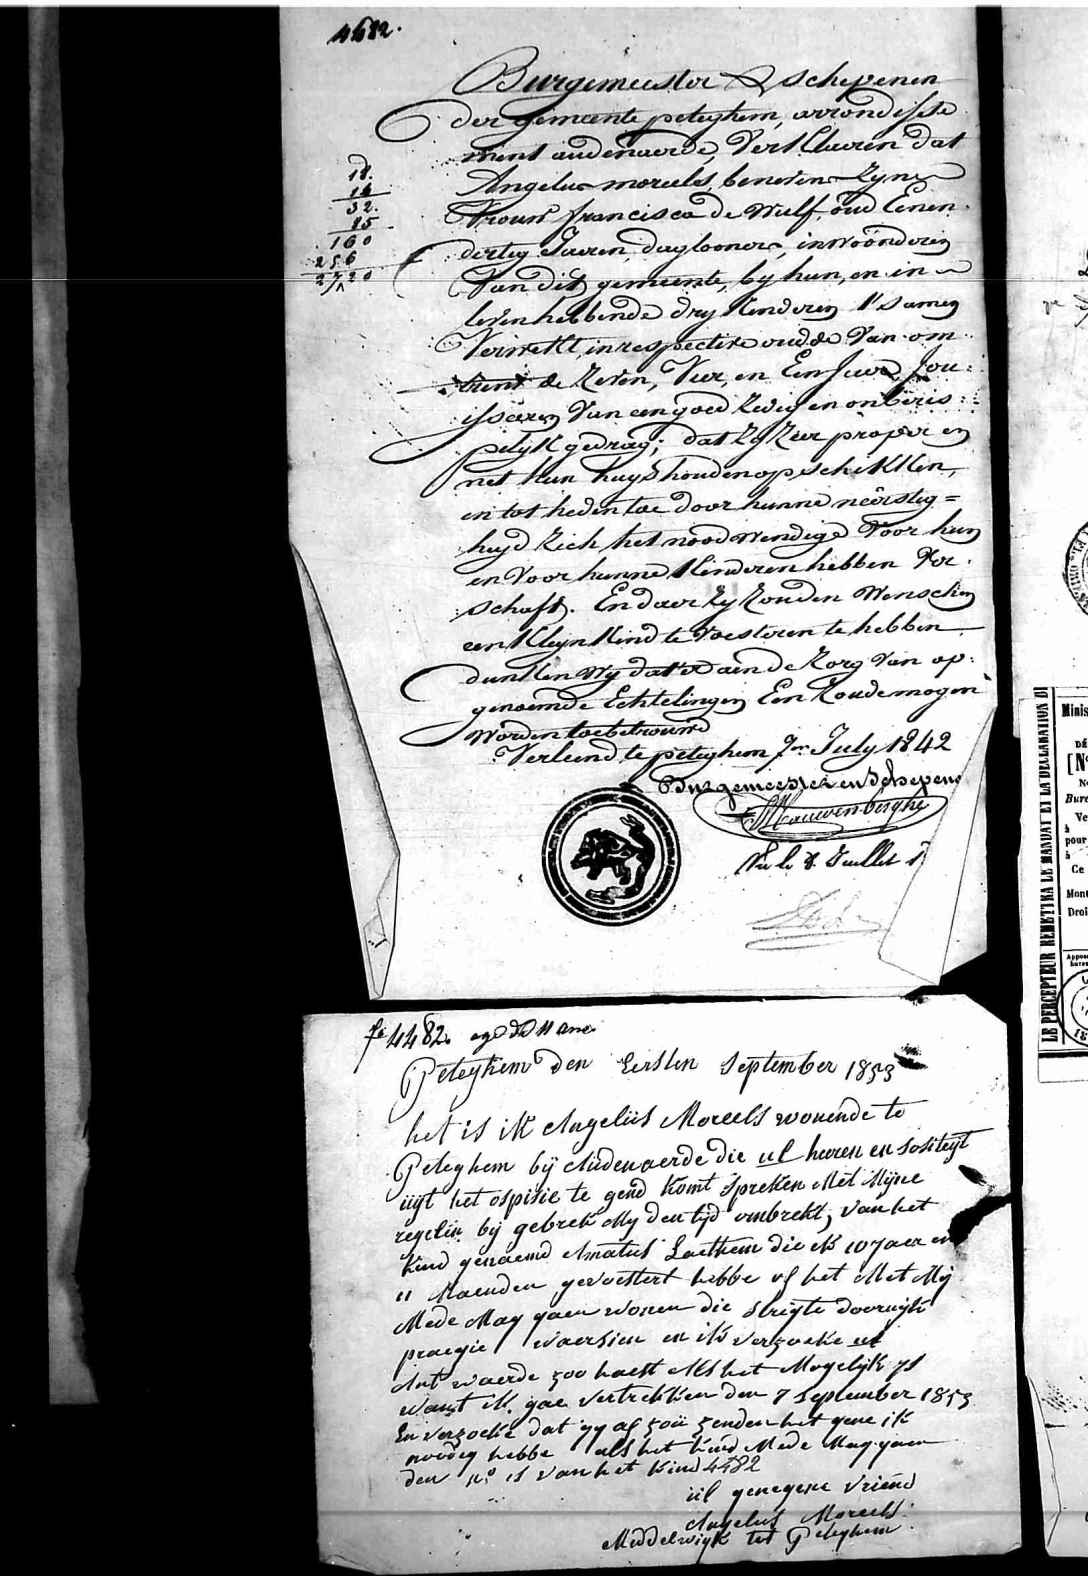 4482.
Burgemeester & schepenen
der gemeente peteghem, arrondisse
ment audenaerde, Verklaeren dat
Angelus moreels, beneven Zyne
Vrouw francisca de Wulf, oud Eenen
dertig Jaeren, daglooners, inwoonderen
Van dit gemeente, by hun, en in
leven hebbende dry Kinderen t'samen
Verwekt, in respective oudde Van om
trent de Zeven, Vier, en Een Jaer, Jou:
isseren Van een goed Zedig en onberis:
pelyk gedrag; dat Zy Zeer proper en
net hun huys houden opschikken,
en tot heden toe door hunne neêrstig=
heyd Zich het noodwendige Voor hun
en Voor hunne Kinderen hebben Ver
schaft. En daer Zy Zouden Wenschen
een Kleyn Kind te Voesteren te hebben
dunken Wy dat er aen de Zorg Van op:
genoemde Echtelingen Een Zoude mogen
Worden toebetrouwd
Verleend te peteghem 7en July 1842
Burgemeester en Schepene
Vu le 8 Juillet
18.
14
32.
85
160
256
2720
4482. agé de 11 ans.
Peteghem den Eersten September 1853
het is ik Angelus Moreels wonende te
Peteghem bij Audenaerde die ul heeren en sositeyt
uyt het ospisie te gend komt spreken Met Mijne
regelen bij gebrek My den tijd ombrekt, van het
kind genaemd Amatus Laethem die ik 10 Jaer en
11 Maenden gevoestert hebbe of het Met Mij
Mede Mag gaen wonen die
praegie waersien en ik verzoeke ul
Antwaerde zoo haest Als het Mogelijk is
want ik gae vertrekken den 7 September 1853
En verzoeke dat gy af zou zenden het gene ik
noodig hebbe als het kind Mede Mag gaen
den no is van het kind 4482
ul genegene vriend
Angelus Moreels
Middelwijk tot Peteghem
LE PERCEPTEUR REMETTRA LE MANDAT ET LA DÉCLARATION
Minis
[N
Bure
Ve
à
pour
à
Ce
Mont
Droi